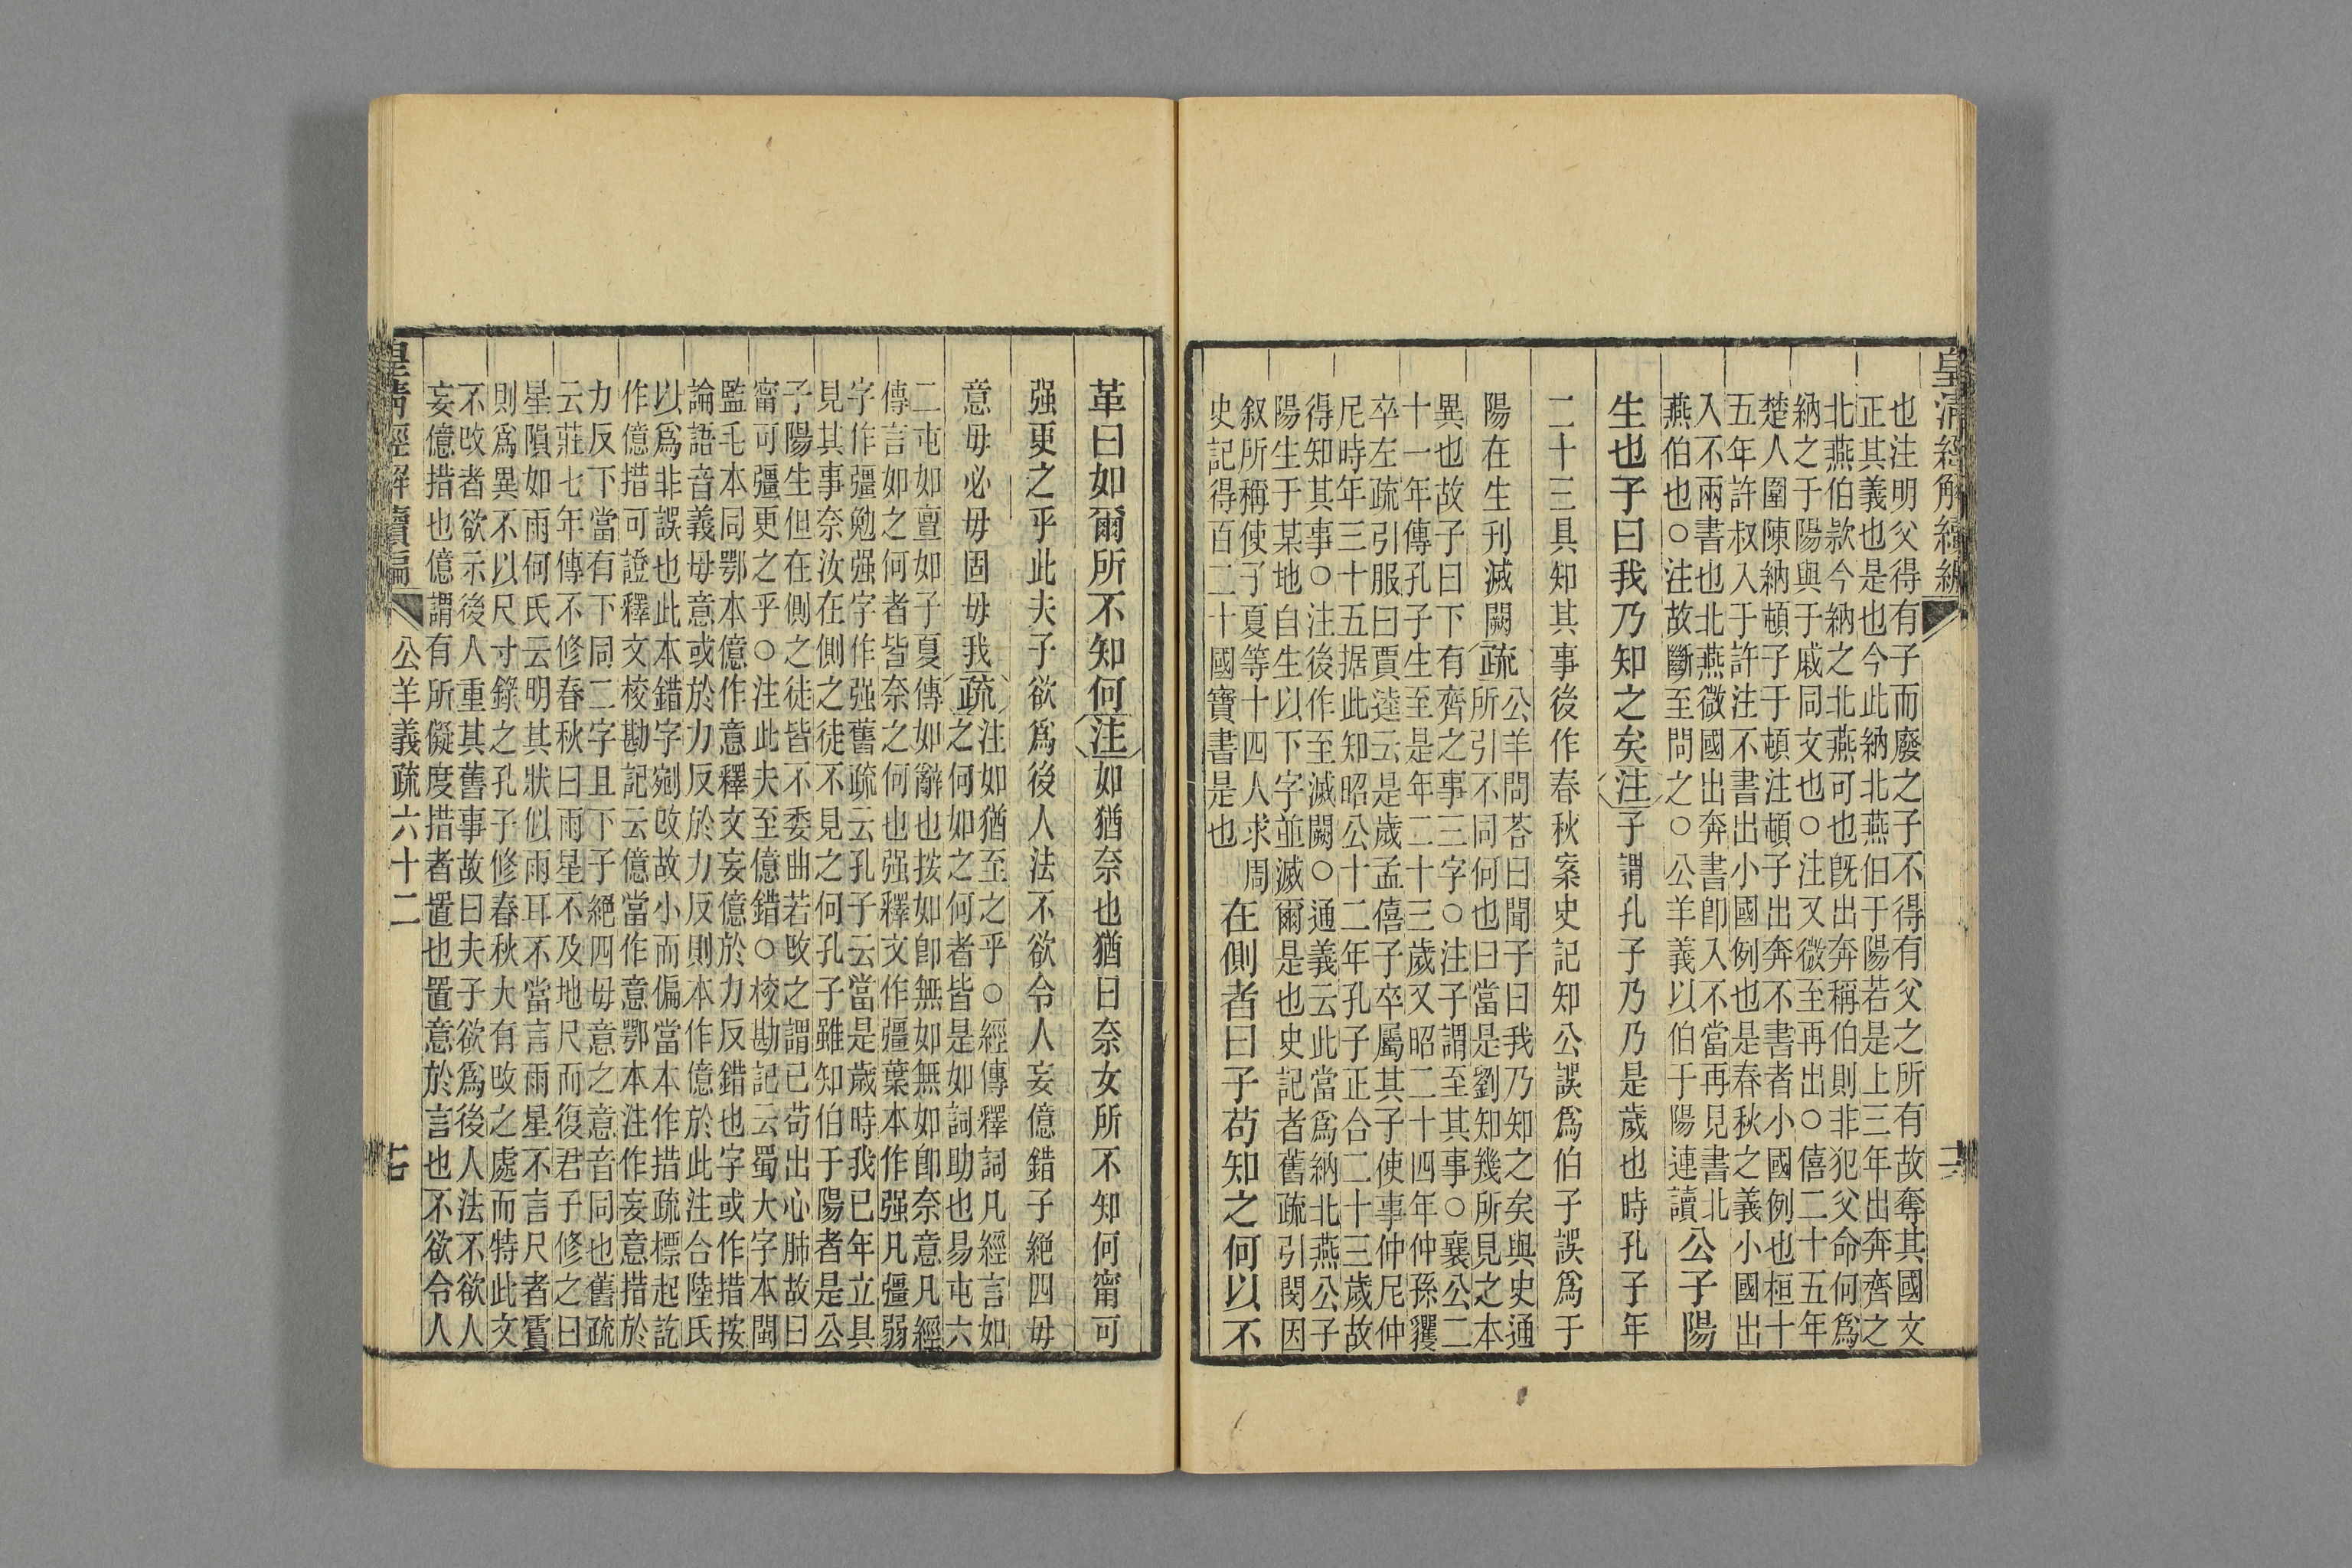 皇清經解續編
也注明父得有子而廢之子不得有父之所有故奪其國文
正其義也是也今此納北燕伯于陽若是上三年出奔齊之
北燕伯款今納之北燕可也既出奔稱伯則非犯父命何爲
納之于陽與于戚同文也○注又微至再出○僖二十五年
楚人圍陳納頓子于頓注頓子出奔不書者小國例也桓十
五年許叔入于許注不書出小國例也是春秋之義小國出
入不兩書也北燕微國出奔書卽入不當再見書北
燕伯也○注故斷至問之○公羊義以伯于陽連讀
公子陽
生也子曰我乃知之矣注子謂孔子乃乃是歲也時孔子年
二十三具知其事後作春秋案史記知公誤爲伯子誤爲于
陽在生刊滅闕疏
公羊問荅曰聞子曰我乃知之矣與史通
所引不同何也曰當是劉知幾所見之本
異也故子曰下有齊之事三字○注子謂至其事○襄公二
十一年傳孔子生至是年二十三歲又昭二十四年仲孫貜
卒左疏引服曰賈逵云是歲孟僖子卒屬其子使事仲尼仲
尼時年三十五据此知昭公十二年孔子正合二十三歲故
得知其事○注後作至滅闕○通義云此當爲納北燕公子
陽生于某地自生以下字並滅爾是也史記者舊疏引閔因
叙所稱使子夏等十四人求周
史記得百二十國寶書是也
在側者曰子苟知之何以不
革曰如爾所不知何注如猶奈也猶曰奈女所不知何甯可
强更之乎此夫子欲爲後人法不欲令人妄億錯子絕四毋
意毋必毋固毋我疏
注如猶至之乎○經傳釋詞凡經言如
之何如之何者皆是如詞助也易屯六
二屯如亶如子夏傳如辭也按如卽無如無如卽奈意凡經
傳言如之何者皆奈之何也强釋文作彊葉本作强凡彊弱
字作彊勉强字作强舊疏云孔子云當是歲時我已年立具
見其事奈汝在側之徒不見之何孔子雖知伯于陽者是公
子陽生但在側之徒皆不委曲若改之謂已苟出心肺故曰
甯可彊更之乎○注此夫至億錯○校勘記云蜀大字本閩
監毛本同鄂本億作意釋文妄億於力反錯也字或作措按
論語音義毋意或於力反於力反則本作億於此注合陸氏
以爲非誤也此本錯字剜改故小而偏當本作措疏標起訖
作億措可證釋文校勘記云億當作意鄂本注作妄意措於
力反下當有下同二字且下子絕四毋意之意音同也舊疏
云莊七年傳不修春秋曰雨星不及地尺而復君子修之曰
星隕如雨何氏云明其狀似雨耳不當言雨星不言尺者霣
則爲異不以尺寸錄之孔子修春秋大有改之處而特此文
不改者欲示後人重其舊事故曰夫子欲爲後人法不欲人
妄億措也億謂有所儗度措者置也置意於言也不欲令人
皇清經解續編
公羊義疏六十二